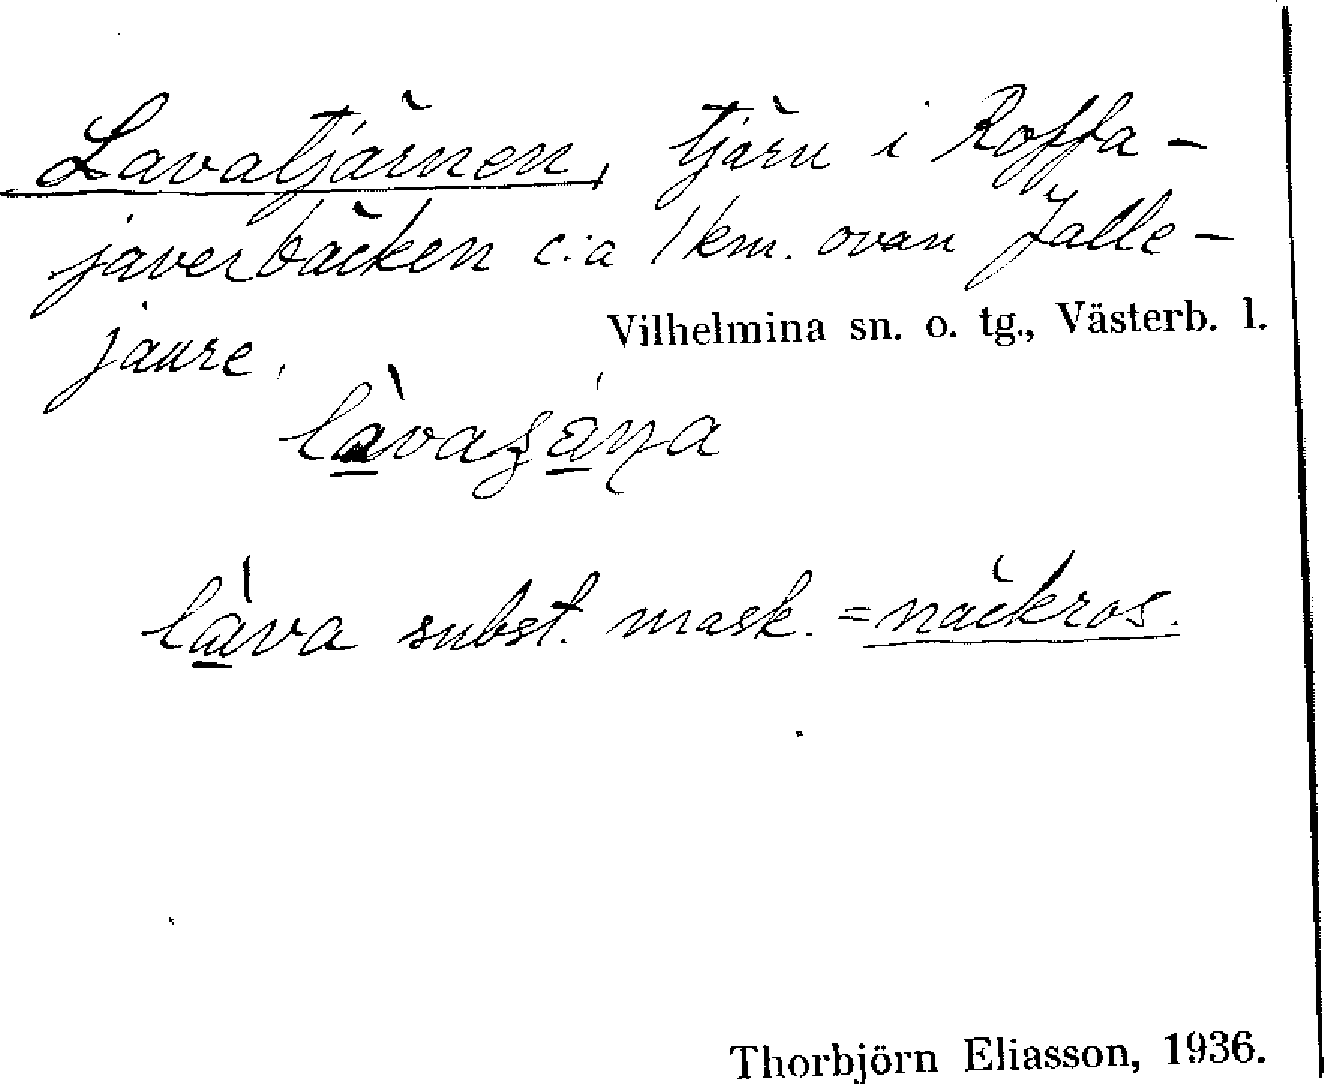 Lavatjärnen, tjärn i Roffa-
javerbäcken c:a 1 km. ovan Jalle-
jaure.
Vilhelmina sn. o. tg., Västerb. l.
láva subst. mask. = näckros.
Thorbjörn Eliasson, 1936.